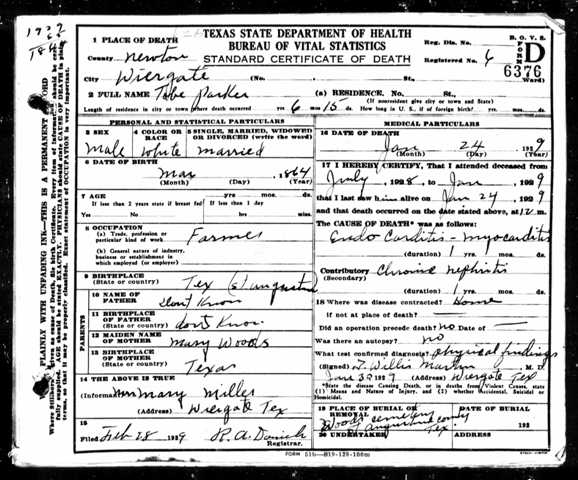 TEXAS STATE DEPARTMENT OF HEALTH
BUREAU OF VITAL STATISTICS
STANDARD CERTIFICATE OF DEATH
B. O. V. S.
FORM D
6376
1 PLACE OF DEATH
County Newton
Reg. Dis. No.
Registered No. 6
City Wiergate (No. St., Ward)
2 FULL NAME Tobe Parker (a) RESIDENCE. No. St.,
(If nonresident give city or town and State)
Length of residence in city or town where death occurred yrs. 6 mos. 15 ds. How long in U. S., if of foreign birth? yrs. mos. ds.
PERSONAL AND STATISTICAL PARTICULARS
3 SEX
Male
4 COLOR OR RACE
White
5 SINGLE, MARRIED, WIDOWED or DIVORCED (write the word)
Married
6 DATE OF BIRTH
Mar , 1864
(Month) (Day) (Year)
7 AGE yrs. mos. ds.
If less than 2 years state if breast fed If less than 1 day
Yes No hrs. min.
8 OCCUPATION
(a) Trade, profession or particular kind of work Farmer
(b) General nature of industry, business or establishment in which employed (or employer)
9 BIRTHPLACE
(State or country) Tex
10 NAME OF FATHER
Dont Know
11 BIRTHPLACE OF FATHER
(State or country) dont Know
12 MAIDEN NAME OF MOTHER
Mary Woods
13 BIRTHPLACE OF MOTHER
(State or country) Texas
PARENTS
14 THE ABOVE IS TRUE
(Informant) Mary Miller
(Address) Wiergate Tex
15
Filed Feb 28 1929 R. A.
Registrar.
MEDICAL PARTICULARS
16 DATE OF DEATH
Jan 24 1929
(Month) (Day) (Year)
17 I HEREBY CERTIFY, That I attended deceased from
July, 1928, to Jan, 1929
that I last saw him alive on Jan 24 1929
and that death occurred on the date stated above, at 12 m.
The CAUSE OF DEATH* was as follows:
Endo Carditis - myocarditis
(duration) 1 yrs. mos. ds.
Contributory Chronic nephritis
(Secondary)
(duration) 1 yrs. mos. ds.
18 Where was disease contracted? Home
if not at place of death?
Did an operation precede death? no Date of
Was there an autopsy? no
What test confirmed diagnosis? physical findings
(Signed) T. Willis M. D.
192 (Address) Wiergate Tex
*State the disease Causing Death, or in deaths from Violent Causes, state (1) Means and Nature of Injury, and (2) whether Accidental, Suicidal or Homicidal.
19 PLACE OF BURIAL OR REMOVAL
Woods cemetery
county
Tex
DATE OF BURIAL
192
20 UNDERTAKER
FORM 51